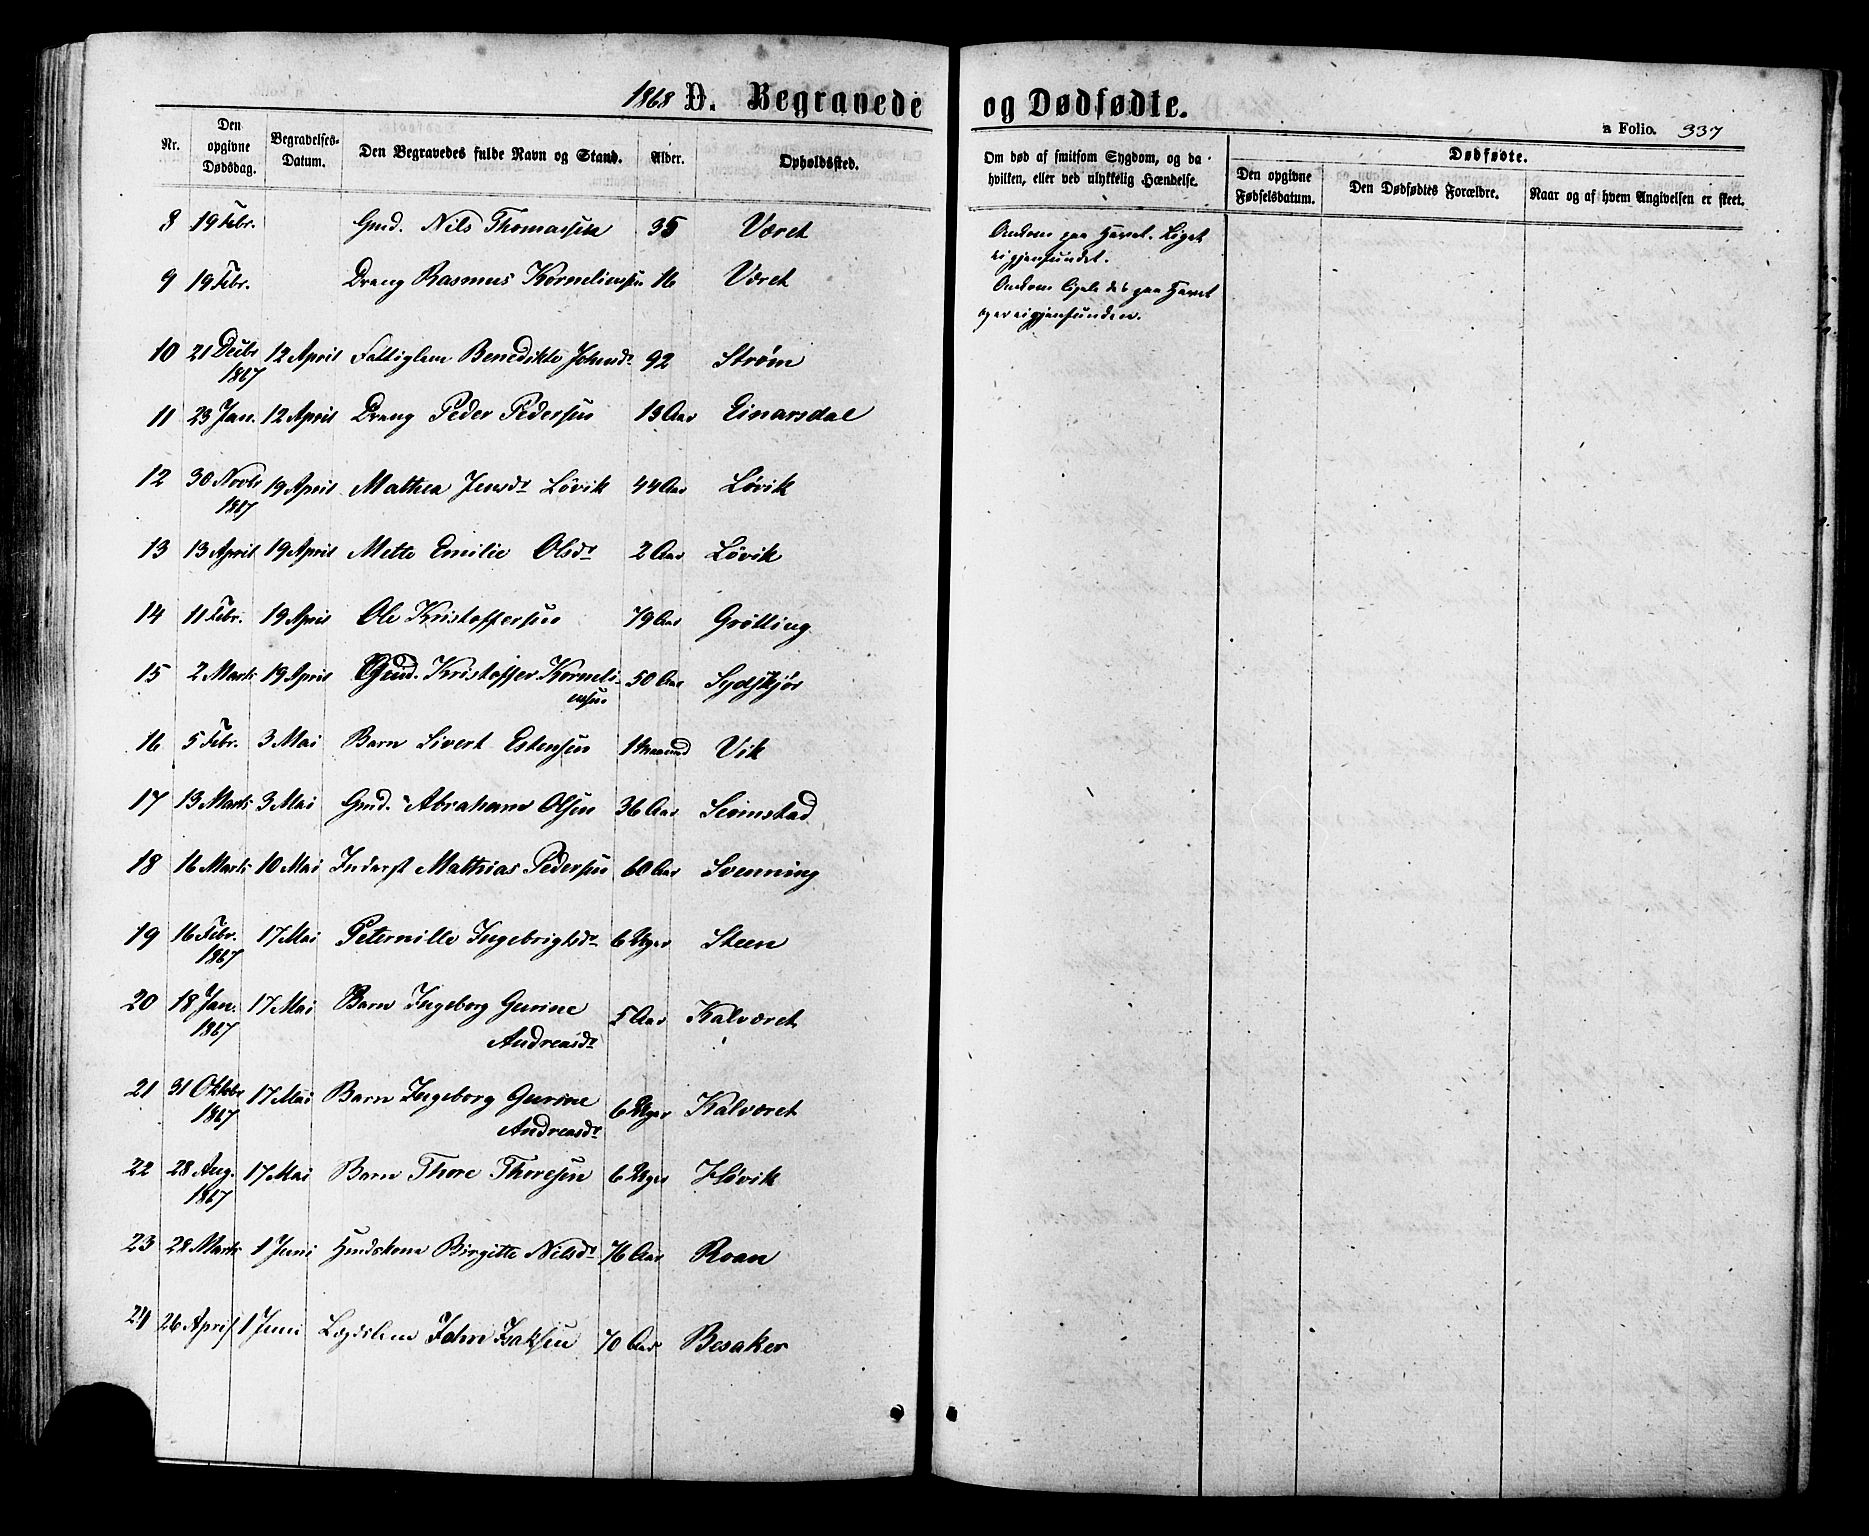 1868 D. Begravede og Dødfødte.
a Folio. 337
Nr.
Den opgivne Dødsdag.
Begravelses-Datum.
Den Begravedes fulde Navn og Stand.
Alder.
Opholdssted.
Om død af smitsom Sygdom, og da
hvilken, eller ved ulykkelig Hændelse.
Dødfødte.
Den opgivne Fødselsdatum.
Den Dødfødtes Forældre.
Naar og af hvem Angivelsen er skeet.
8 19 Febr. Gmd. Nils Thomassen 35 Været Omkom paa Havet. Liget
ei gjenfundet.
9 19 Febr. Dreng Rasmus Korneliussen 16 Været Omkom ligeledes paa Havet
og er ei gjenfunden.
10 21 Decbr 1867 12 April Fattiglem Benedikte Johnsdr 92 Strøm
11 23 Jan. 12 April Dreng Peder Pedersen 13 Aar Einarsdal
12 30 Novbr 1867 19 April Mathea Jensdr Løvik 44 Aar Løvik
13 13 April 19 April Mette Emilie Olsdr 2 Aar Løvik
14 11 Febr. 19 April Ole Kristoffersen 79 Aar Grøtting
15 2 Marts 19 April Gmd. Kristoffer Korneli-
ussen 50 Aar Sydskjør
16 5 Febr. 3 Mai Barn Sivert Estensen 1 Maaned Vik
17 13 Marts 3 Mai Gmd. Abraham Olsen 36 Aar Sumstad
18 16 Marts 10 Mai Inderst Mathias Pedersen 60 Aar Svenning
19 16 Febr. 1867 17 Mai Peternille Ingebrigtsdr 6 Uger Steen
20 18 Jan. 1867 17 Mai Barn Ingeborg Gurine
Andreasdr 5 Aar Kalværet
21 31 Oktobr 1867 17 Mai Barn Ingeborg Gurine
Andreasdr 6 Uger Kalværet
22 28 Aug. 1867 17 Mai Barn Thore Thoresen 6 Uger Høvik
23 28 Marts 1 Juni Huuskone Birgitte Nilsdr 76 Aar Roan
24 26 April 1 Juni Lægdslem John Isaksen 70 Aar Besaker